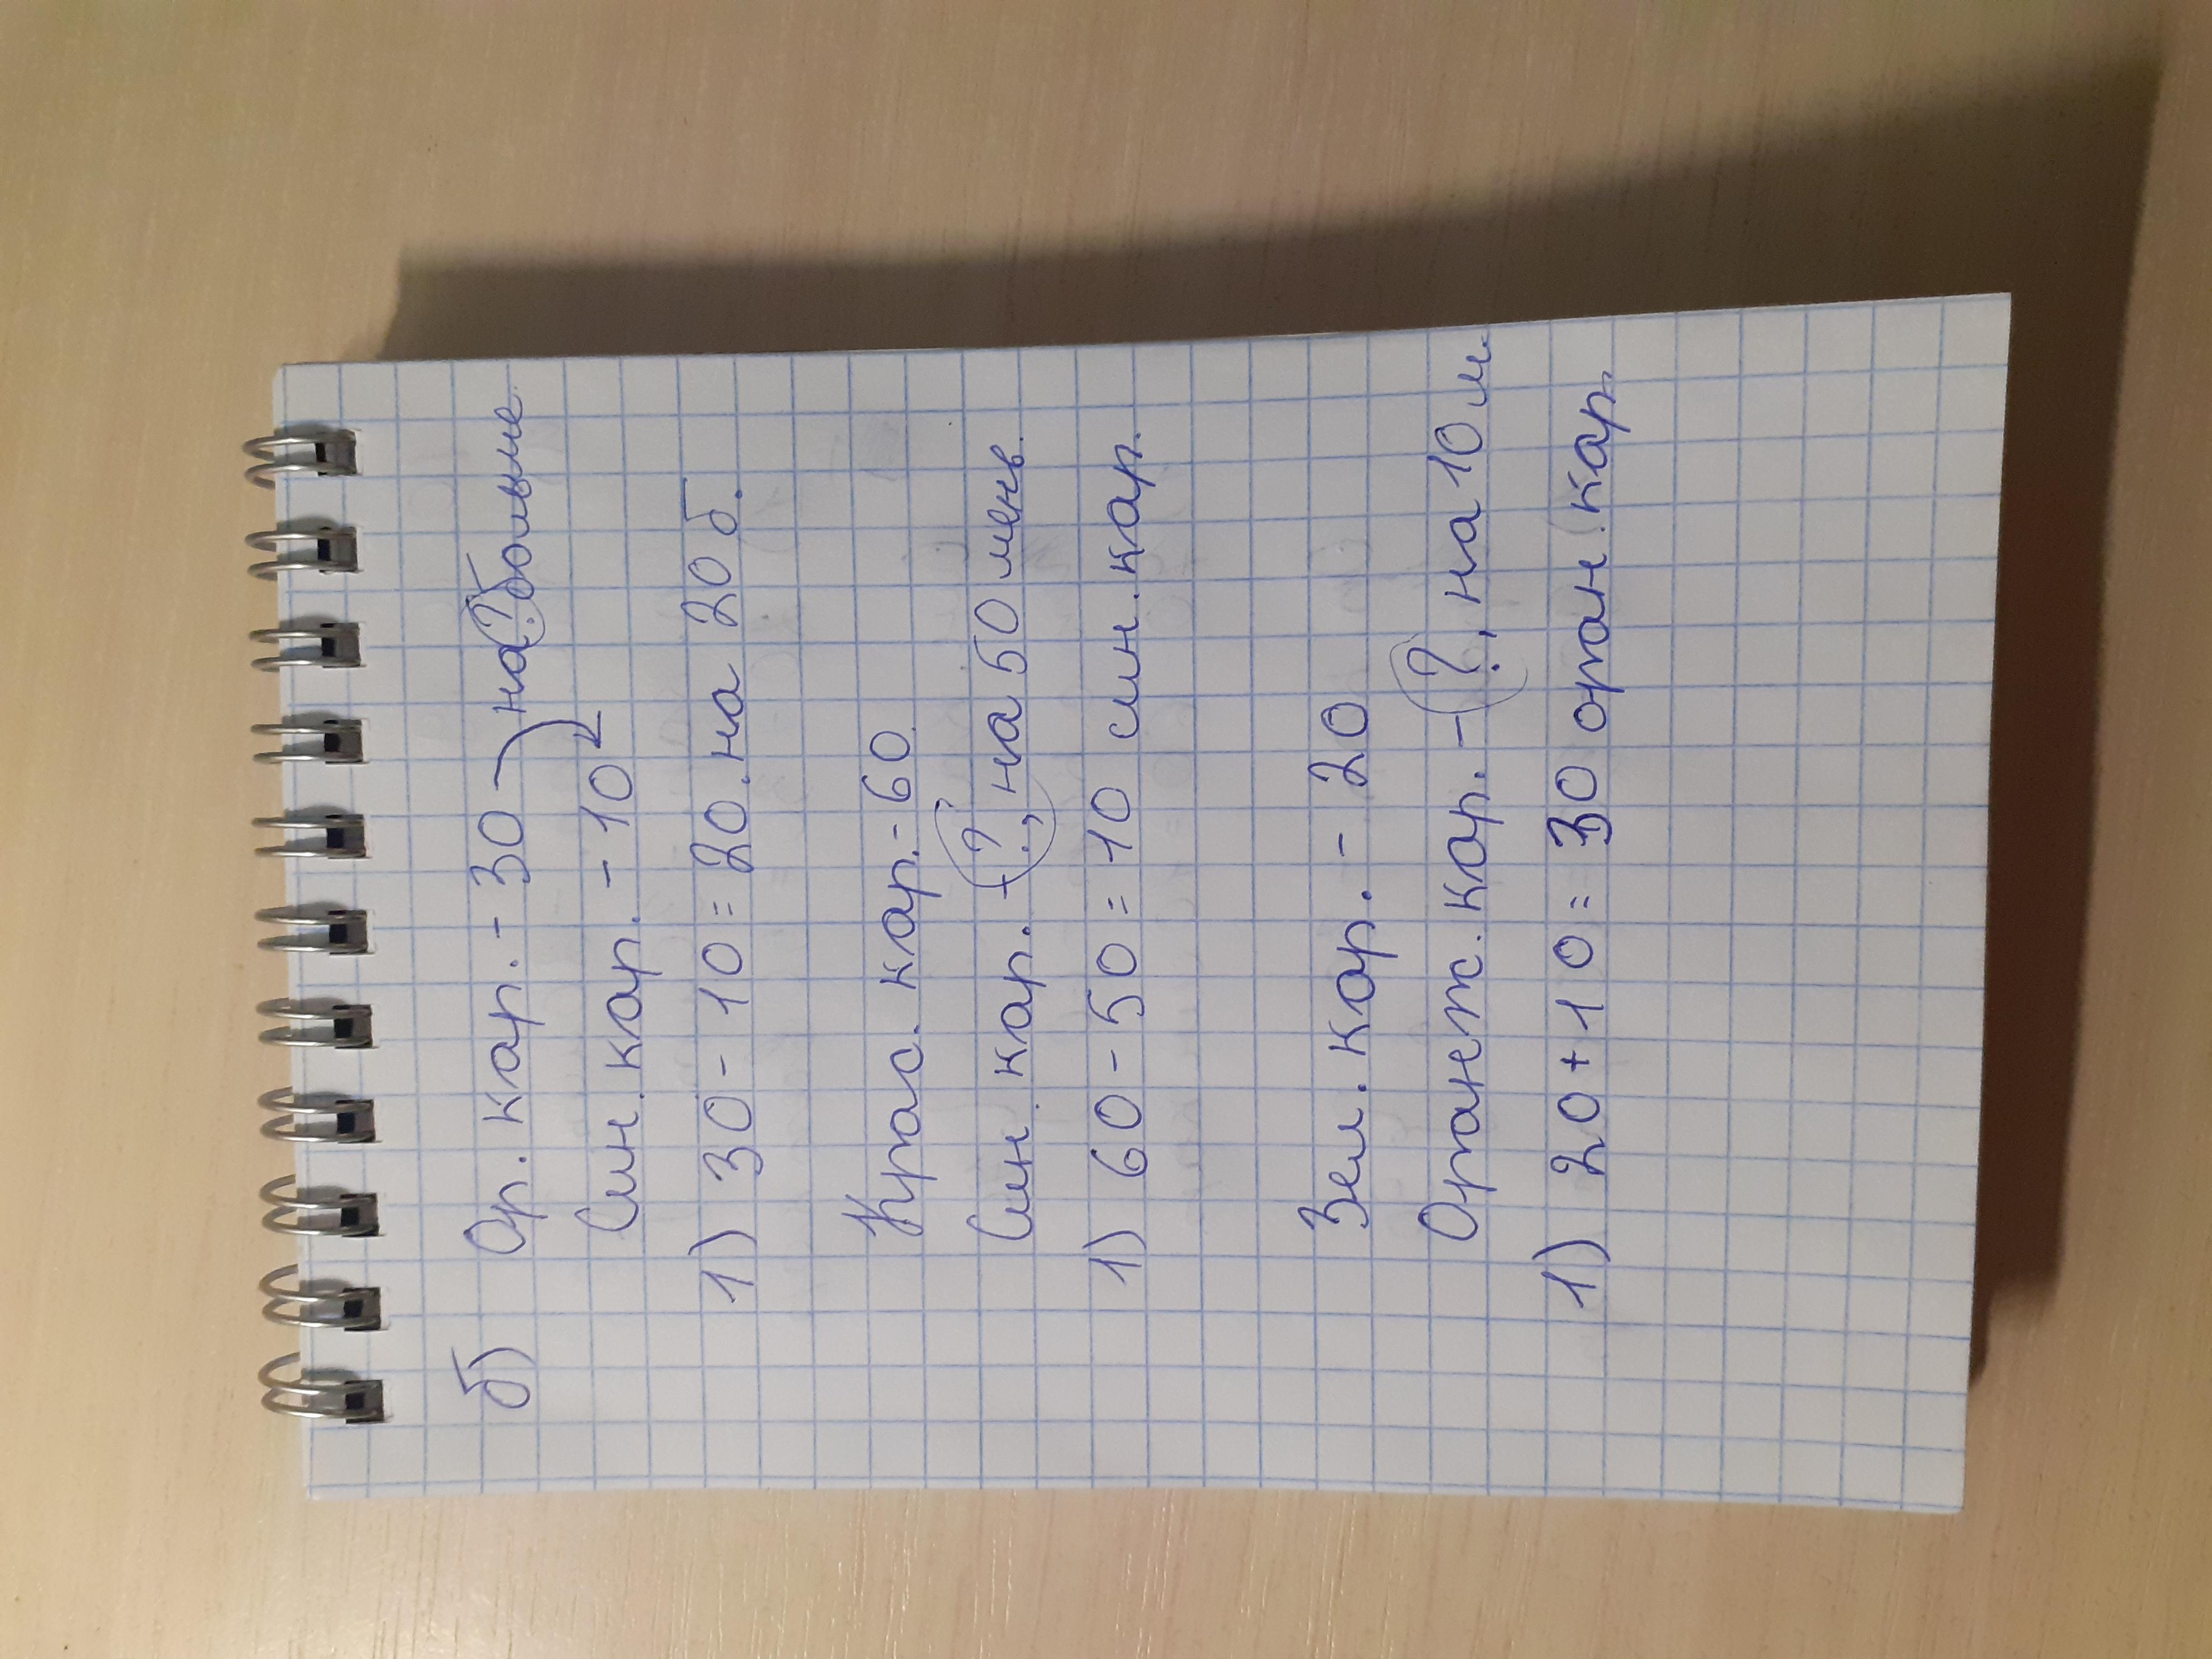 б) Ор. кар. - 30 на ? больше
Син. кар. - 10
1) 30 - 10 = 20. на 20 б.
Крас. кар. - 60
Син. кар. - ?, на 50 меньш.
1) 60 - 50 = 10 син. кар.
Зел. кар. - 20
Оранж. кар. - ?, на 10 м.
1) 20 + 10 = 30 оран. кар.